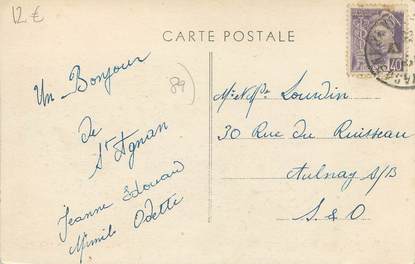 12 €
CARTE POSTALE
Un Bonjour
de
St Agnan
Jeanne Edouard
Mimile Odette
89
40
Mr & Me Lourdin
30 Rue du Ruisseau
Aulnay S/B
S & O